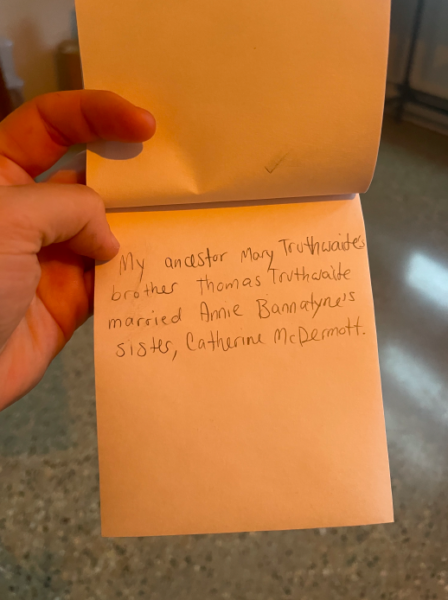 My ancestor Mary Truthwaite's
brother Thomas Truthwaite
married Annie Bannatyne's
sister, Catherine McDermott.